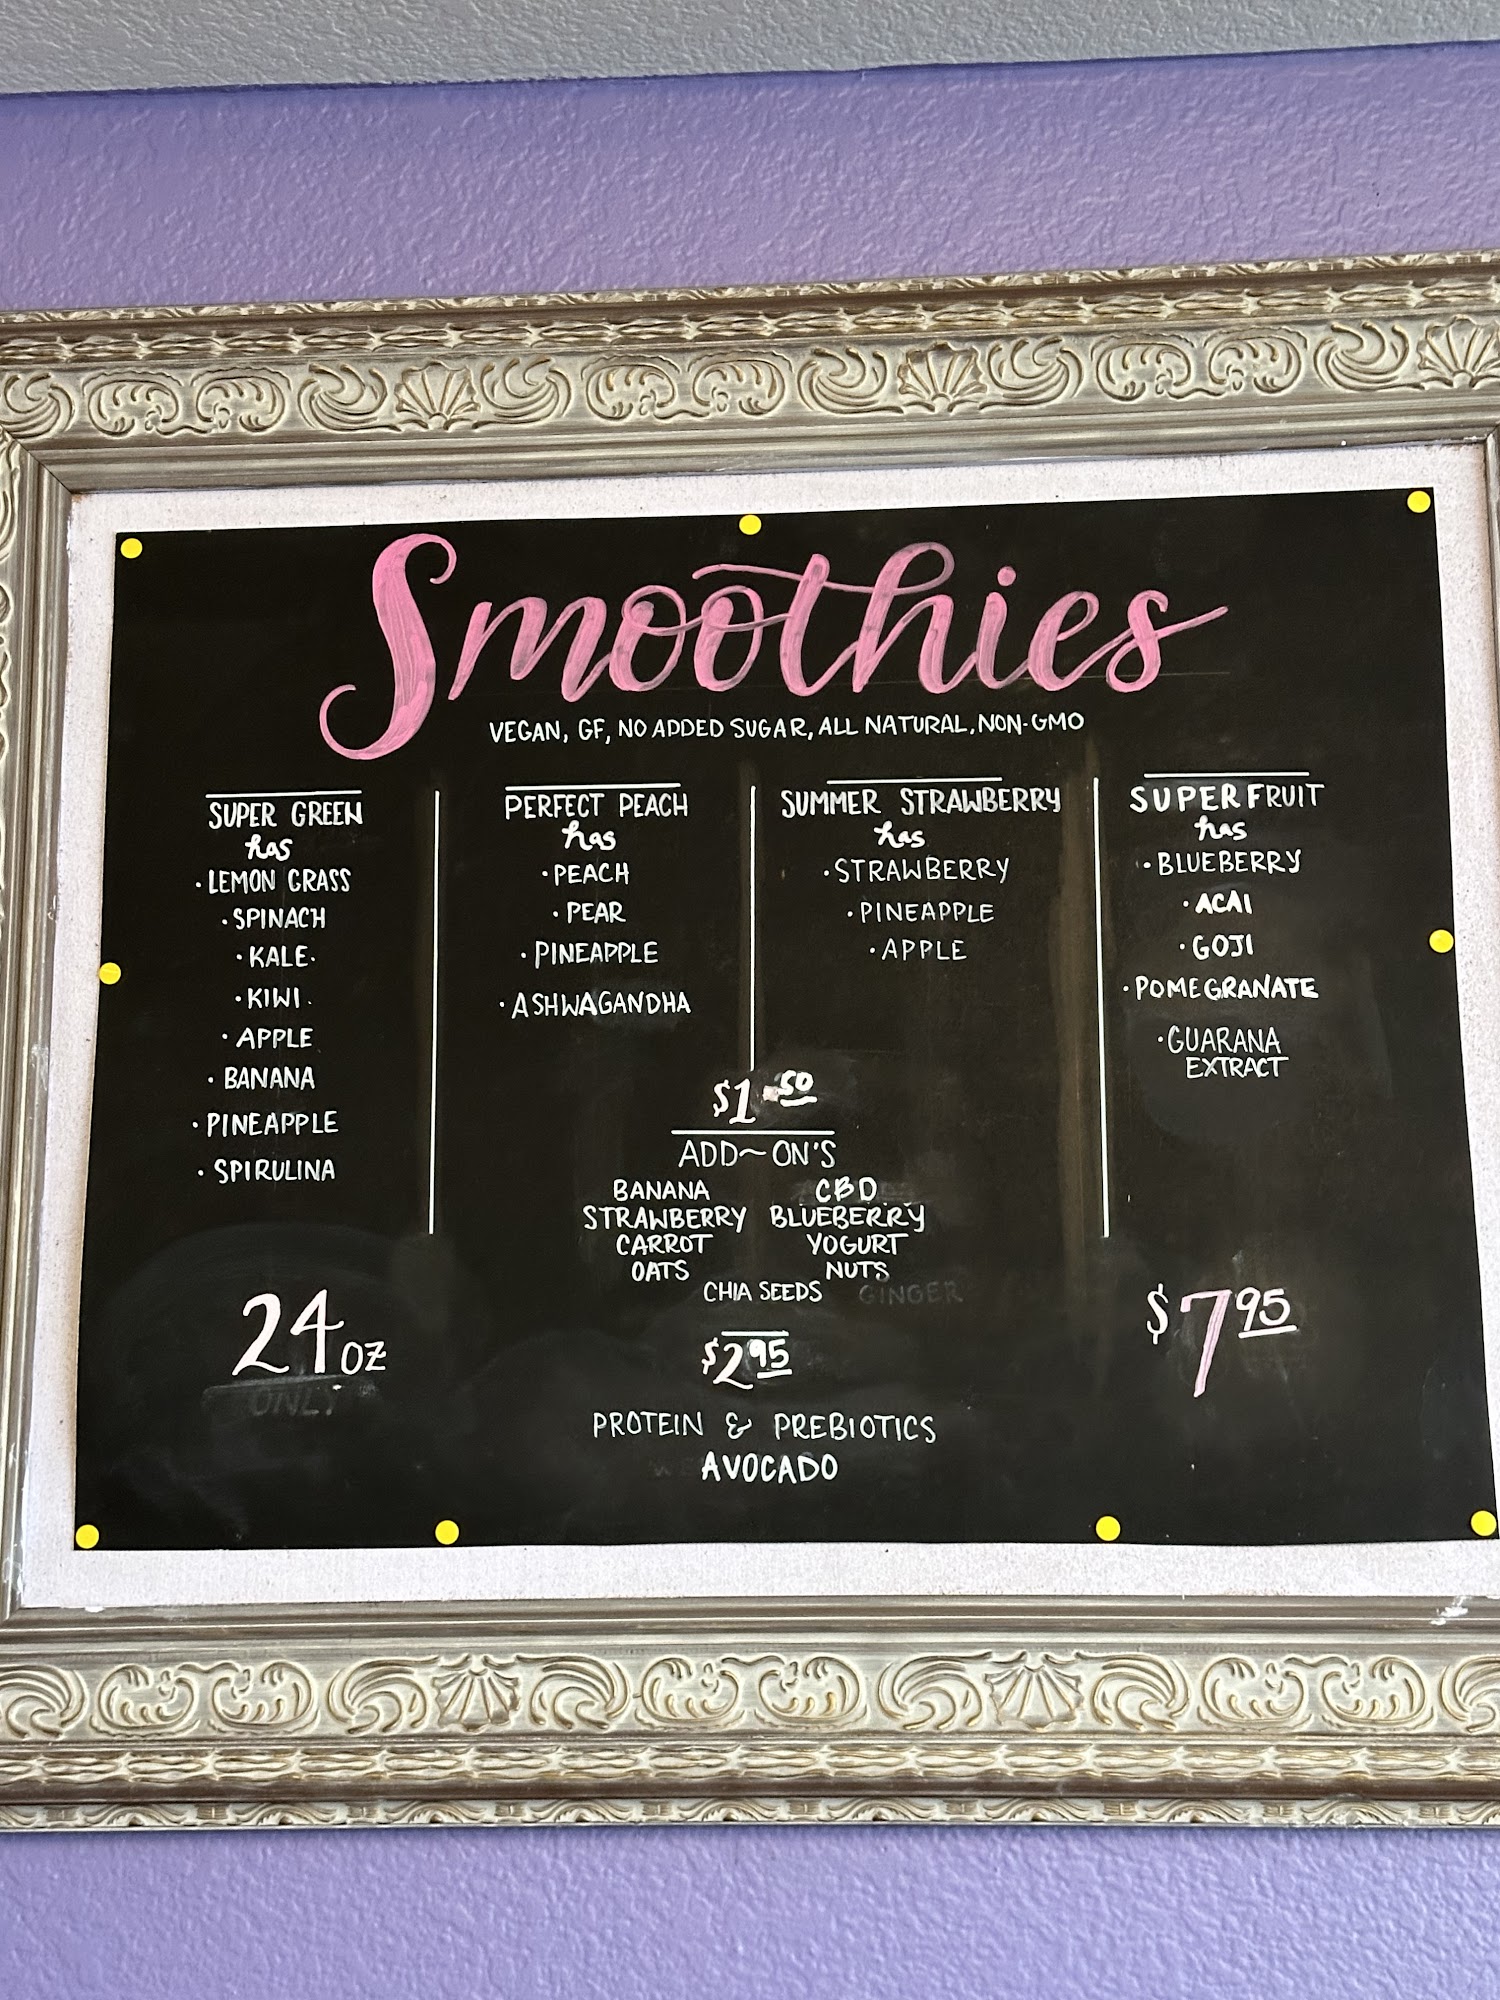 Smoothies
VEGAN, GF, NO ADDED SUGAR, ALL NATURAL, NON-GMO
SUPER GREEN
has
· LEMON GRASS
· SPINACH
· KALE·
· KIWI.
· APPLE
· BANANA
· PINEAPPLE
· SPIRULINA
24 OZ
ONLY
PERFECT PEACH
has
· PEACH
· PEAR
· PINEAPPLE
· ASHWAGANDHA
SUMMER STRAWBERRY
has
· STRAWBERRY
· PINEAPPLE
· APPLE
SUPERFRUIT
has
· BLUEBERRY
· ACAI
· GOJI
· POMEGRANATE
· GUARANA
EXTRACT
$1.50
ADD~ON'S
BANANA CBD
STRAWBERRY BLUEBERRY
CARROT YOGURT
OATS NUTS
CHIA SEEDS GINGER
$2 95
PROTEIN & PREBIOTICS
AVOCADO
$7 95